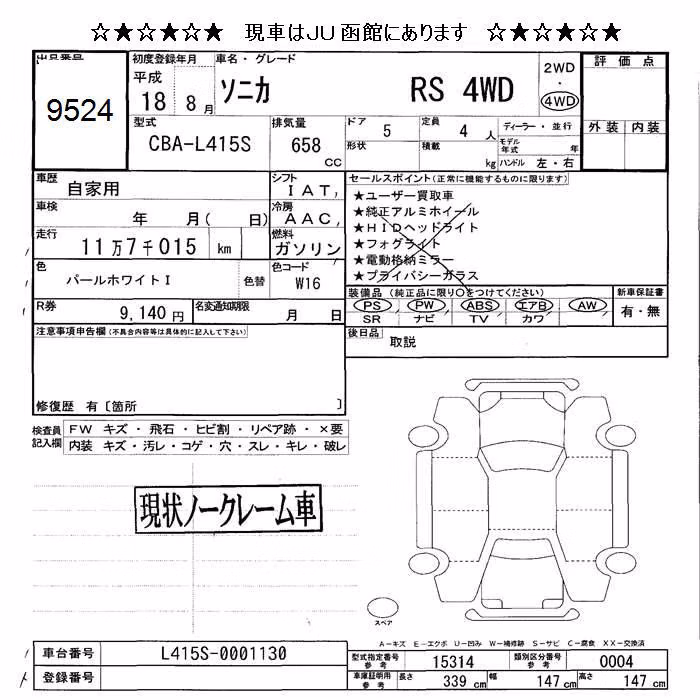 ☆★☆★☆★ 現車はJU函館にあります ☆★☆★☆★
出品番号
9524
初度登録年月
平成
18 8 月
車名・グレード
ソニカ RS 4WD
2WD
・
4WD
評価点
外装 内装
型式
CBA-L415S
排気量
658
cc
ドア
5
定員
4 人
形状
積載
kg
ディーラー・並行
モデル年式 年
ハンドル 左・右
車歴
自家用
シフト
IAT
車検
年 月( 日)
冷房
AAC
走行
11万7千015 km
燃料
ガソリン
色
パールホワイトI
色替
色コード
W16
R券
9,140円
名変通知期限
月 日
セールスポイント(正常に機能するものに限ります)
★ユーザー買取車
★純正アルミホイール
★HIDヘッドライト
★フォグライト
★電動格納ミラー
★プライバシーガラス
装備品(純正品に限り○をつけてください)
PS PW ABS エアB AW
SR ナビ TV カワ
新車保証書
有・無
後日品
取説
注意事項申告欄(不具合内容等は具体的に記入して下さい)
修復歴 有〔箇所 〕
検査員
記入欄
FW キズ・飛石・ヒビ割・リペア跡・×要
内装 キズ・汚レ・コゲ・穴・スレ・キレ・破レ
現状ノークレーム車
スペア
A-キズ E-エクボ U-凹み W-補修跡 S-サビ C-腐食 XX-交換済
車台番号
L415S-0001130
登録番号
型式指定番号
参考
15314
類別区分番号
参考
0004
車庫証明用
参考
長さ
339 cm
幅
147 cm
高さ
147 cm